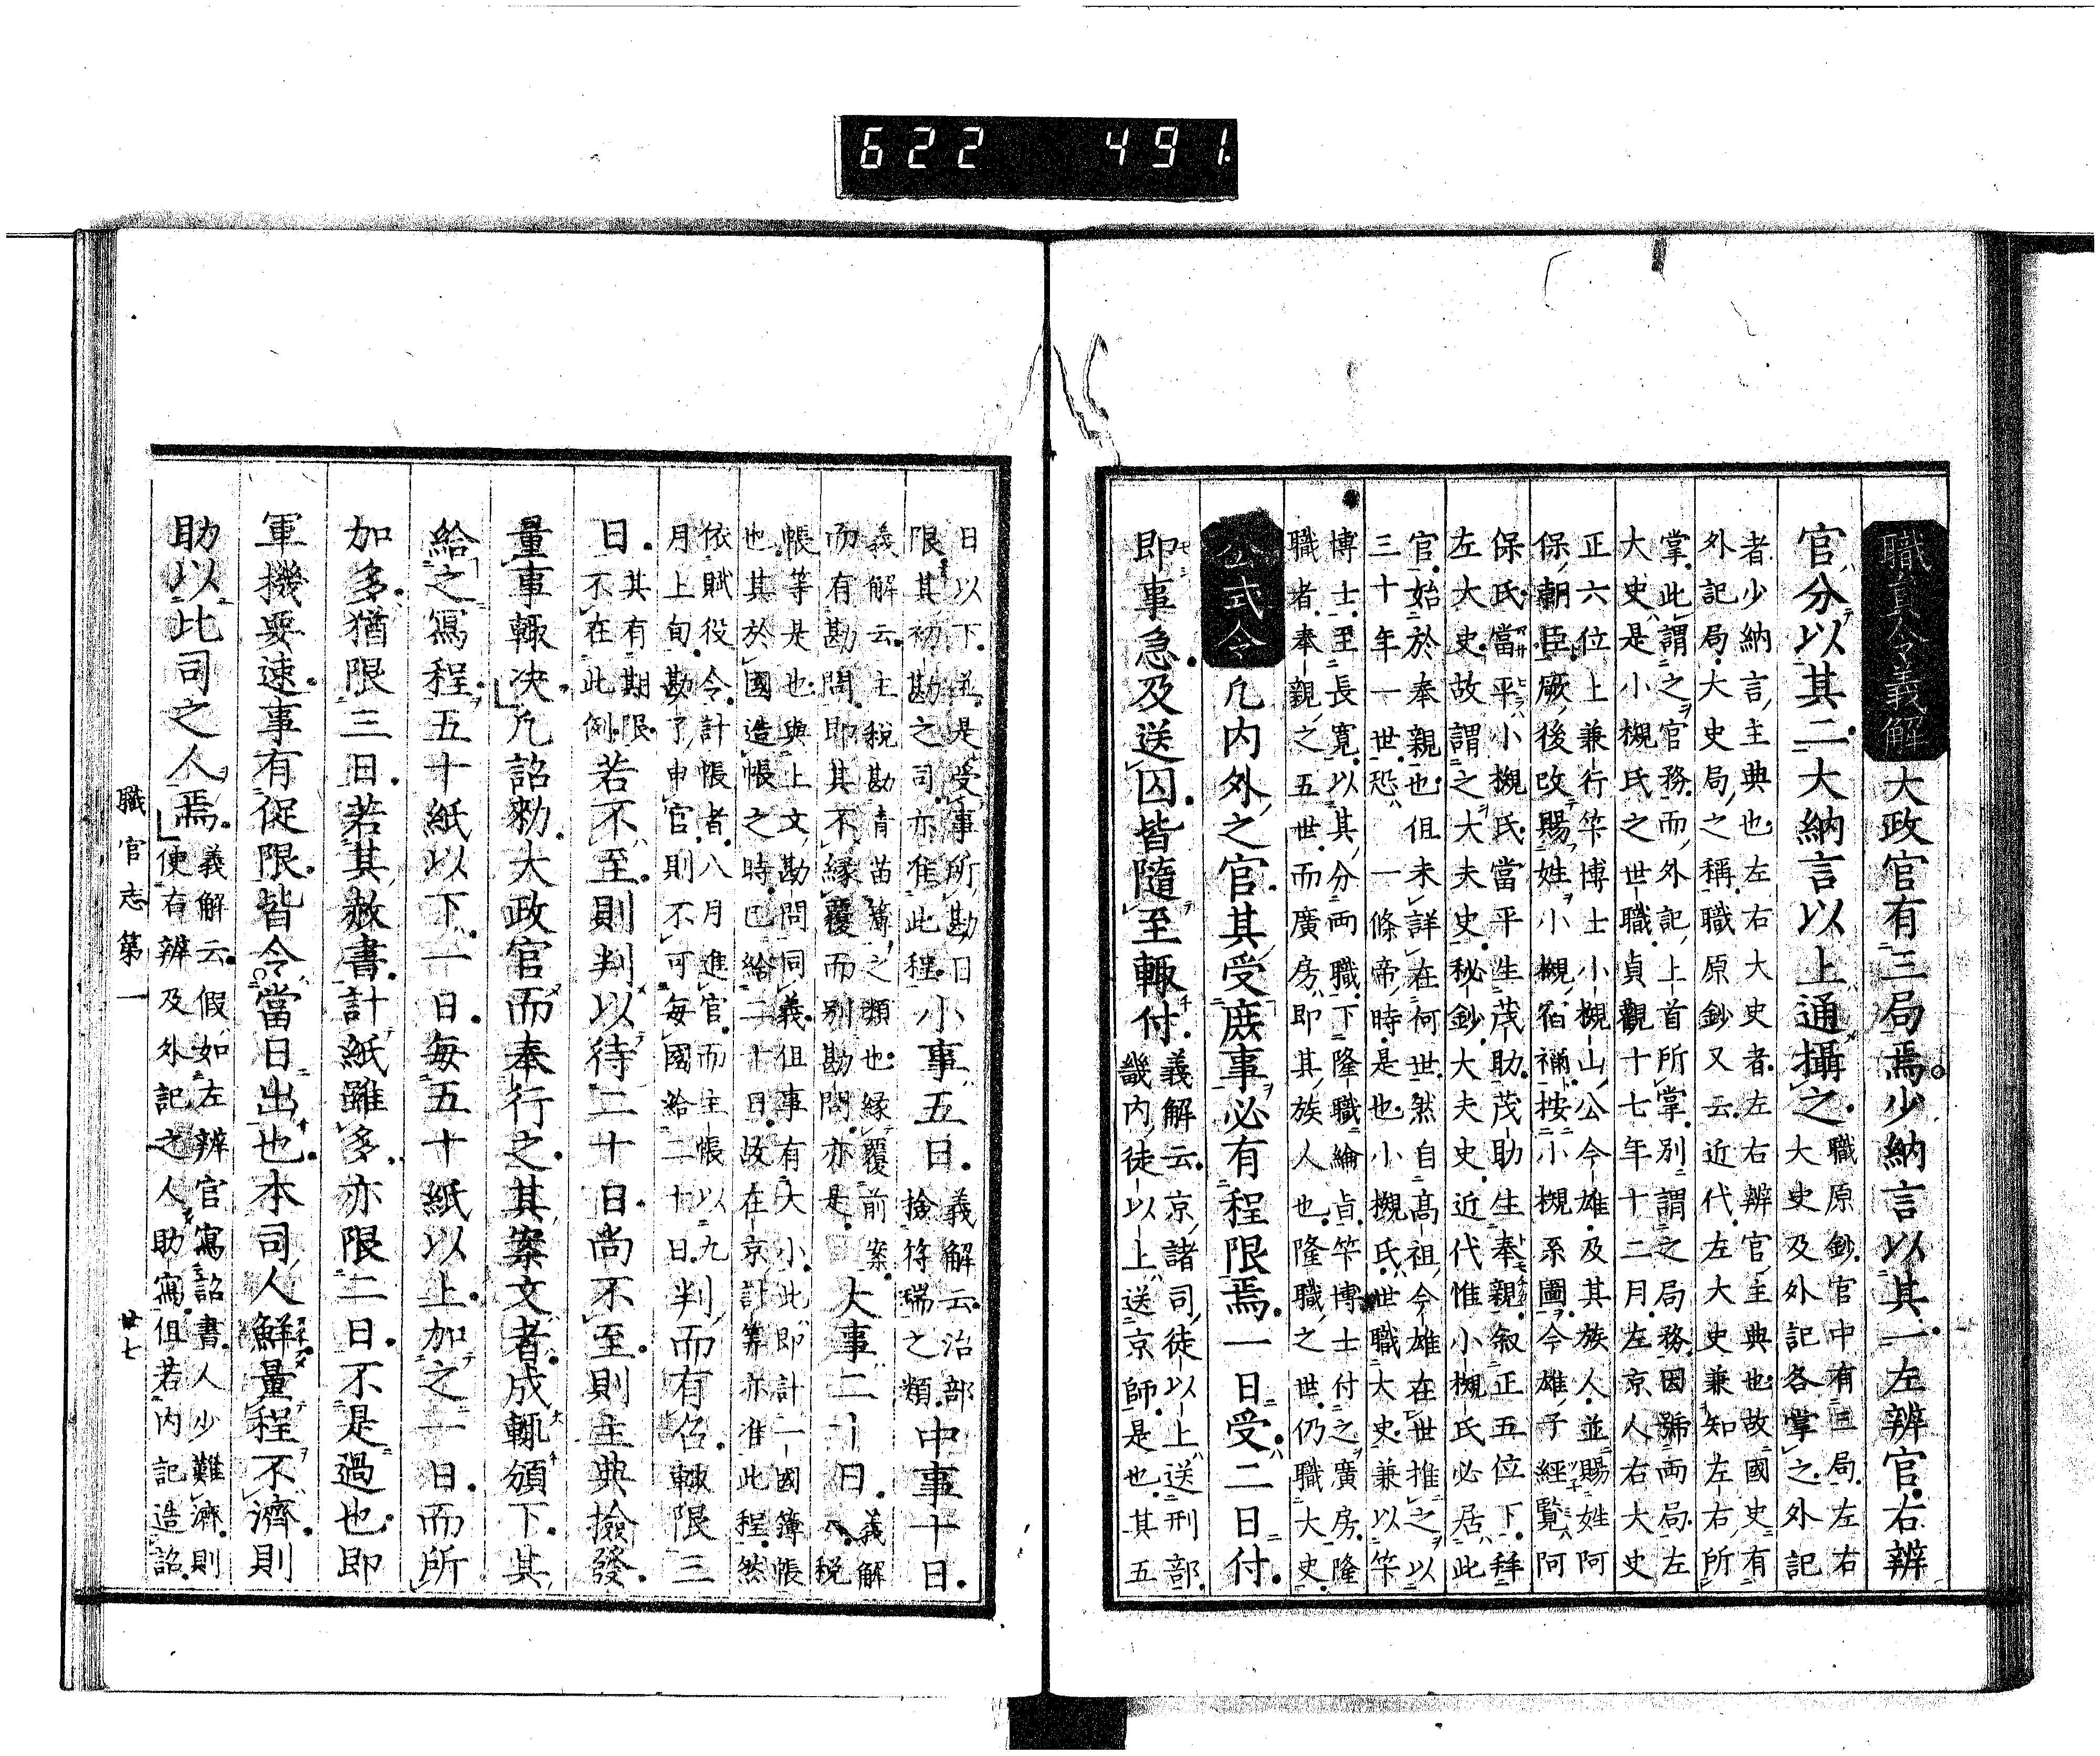 622 491.
職員令義解 大政官有三局焉少納言以其一左辨官右辨
官分以其二大納言以上通攝之 職原鈔官中有三局左右
大史及外記各掌之外記
者少納言主典也左右大史者左右辨官主典也故國史有
外記局大史局之稱職原鈔又云近代左大史兼知左右所
掌此謂之官務而外記上首所掌別謂之局務因號両局左
大史是小槻氏之世職貞觀十七年十二月左京人右大史
正六位上兼行笇博士小槻山公今雄及其族人並賜姓阿
保朝臣厥後改賜姓小槻宿禰按小槻系圖今雄子經覽阿
保氏當平小槻氏當平生茂助茂助生奉親叙正五位下拜
左大史故謂之大夫史秘鈔大夫史近代惟小槻氏必居此
官始於奉親也但未詳在何世然自高祖今雄在世推之以
三十年一世恐一條帝時是也小槻氏世職大史兼以笇
博士至長寬以其分両職下隆職綸貞笇博士付之廣房隆
職者奉親之五世而廣房即其族人也隆職之世仍職大史
公式令 凡内外之官其受庶事必有程限焉一日受二日付
即事急及送囚皆隨至輙付 義解云京諸司徒以上送刑部
畿内徒以上送京師是也其五
日以下並是受事所勘日
限其初勘之司亦准此程 小事五日 義解云治部
撿符瑞之類 中事十日
義解云主税勘青苗簿之類也縁覆前案
而有勘問即其不縁覆而別勘問亦是 大事二十日 義解
云税
帳等是也與上文勘問同義但事有大小此即計一國簿帳
也其於國造帳之時已給二十日故在京計筭亦准此程然
依賦役令計帳者八月進官而主帳以九
月上旬勘了申官則不可毎國給二十日 判而有召輙限三
日 其有期限
不在此例 若不至則判以待二十日尚不至則主典撿發
量事輙决凡詔勅大政官而奉行之其案文者成輙頒下其
給之寫程五十紙以下一日毎五十紙以上加之一日而所
加多猶限三日若其赦書計紙雖多亦限二日不是過也即
軍機要速事有促限皆令當日出也本司人鮮量程不濟則
助以此司之人焉 義解云假如左辨官寫詔書人少難濟則
使右辨及外記之人助寫但若内記造詔
職官志第一 廿七